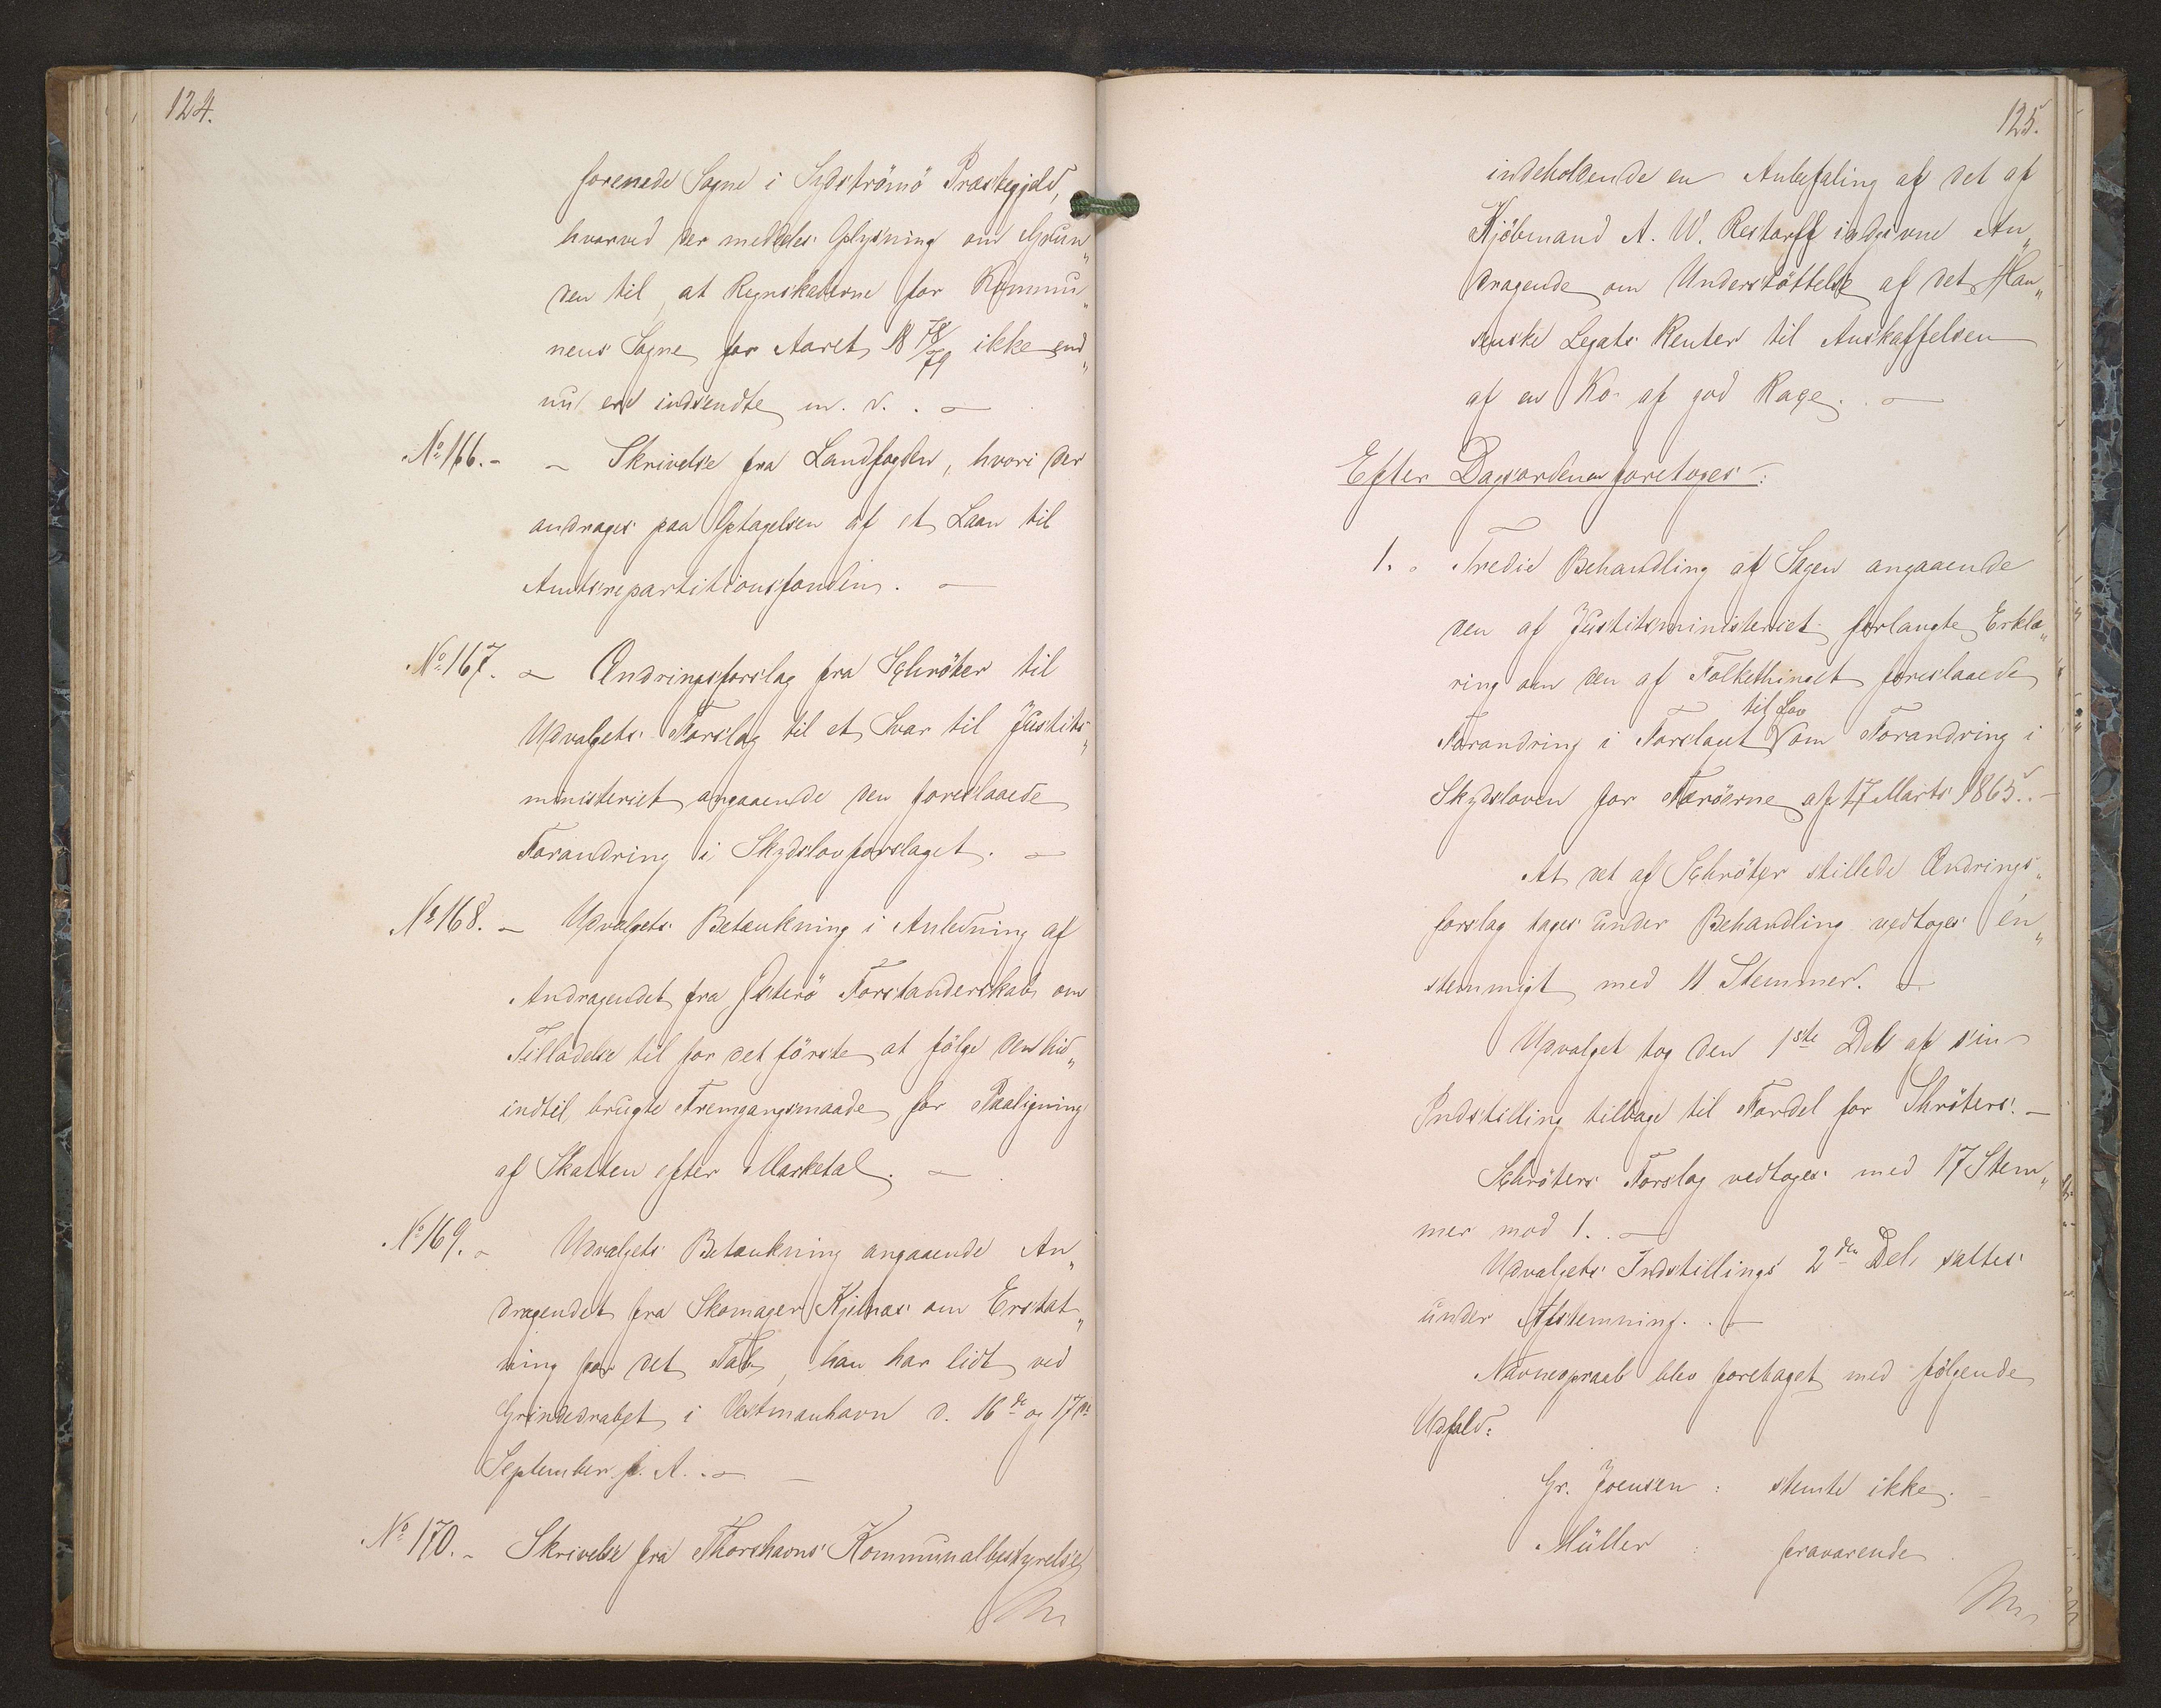 124.
forenede Sogne i Sydströmö Præstegjeld,
hvorved der meddeles Oplysning om Grun„
den til, at Regnskaberne for Kommu„
nens Sogne for Aaret 18 78/79 ikke end„
nu ere indsendte m. v. . —
No 166. – – Skrivelse fra Landfogden, hvori der
andrages paa Optagelsen af et Laan til
Amtsrepartitionsfonden. —
No 167. – Ændringsforslag fra Schröter til
Udvalgets Forslag til et Svar til Justits„
ministeriet angaaende den foreslaaede
Forandring i Skydslovforslaget. —
No 168. – Udvalgets Betænkning i Anledning af
Andragendet fra Österö Forstanderskab om
Tilladelse til for det förste at fölge den hid„
indtil brugte Fremgangsmaade for Paaligning
af Skatten efter Marketal. —
No 169. – Udvalgets Betænkning angaaende An„
dragendet fra Skomager Kjelnæs om Erstat„
ning for det Tab, han har lidt ved
Grindedrabet i Vestmanhavn d. 16de og 17de
September f. A. . —
No 170. – Skrivelse fra Thorshavns Kommunalbestyrelse
125.
indeholdende en Anbefaling af det af
Kjöbmand A. W. Restorff indgivne An„
dragende om Understöttelse af det Han„
senske Legats Renter til Anskaffelsen
af en Ko af god Race. . —
Efter Dagsordenen foretoges:
1. . Tredie Behandling af Sagen angaaende
den af Justitsministeriet forlangte Erklæ„
ring om den af Folkethinget foreslaaede
til Lov
Forandring i Forslaget om Forandring i
Skydsloven for Færöerne af 17 Marts 1865. . —
At det af Schröter stillede Ændrings„
forslag tages under Behandling vedtoges én„
stemmigt med 11 Stemmer. —
Udvalget tog den 1ste Del af sin
Indstilling tilbage til Fordel for Shröters. —
Schröters Forslag vedtoges med 17 Stem„
mer mod 1. . —
Udvalgets Indstillings 2den Del sattes
under Afstemning. . —
Navneopraab blev foretaget med fölgende
Udfald:
Gr. Joensen : stemte ikke. —
Müller : fraværende